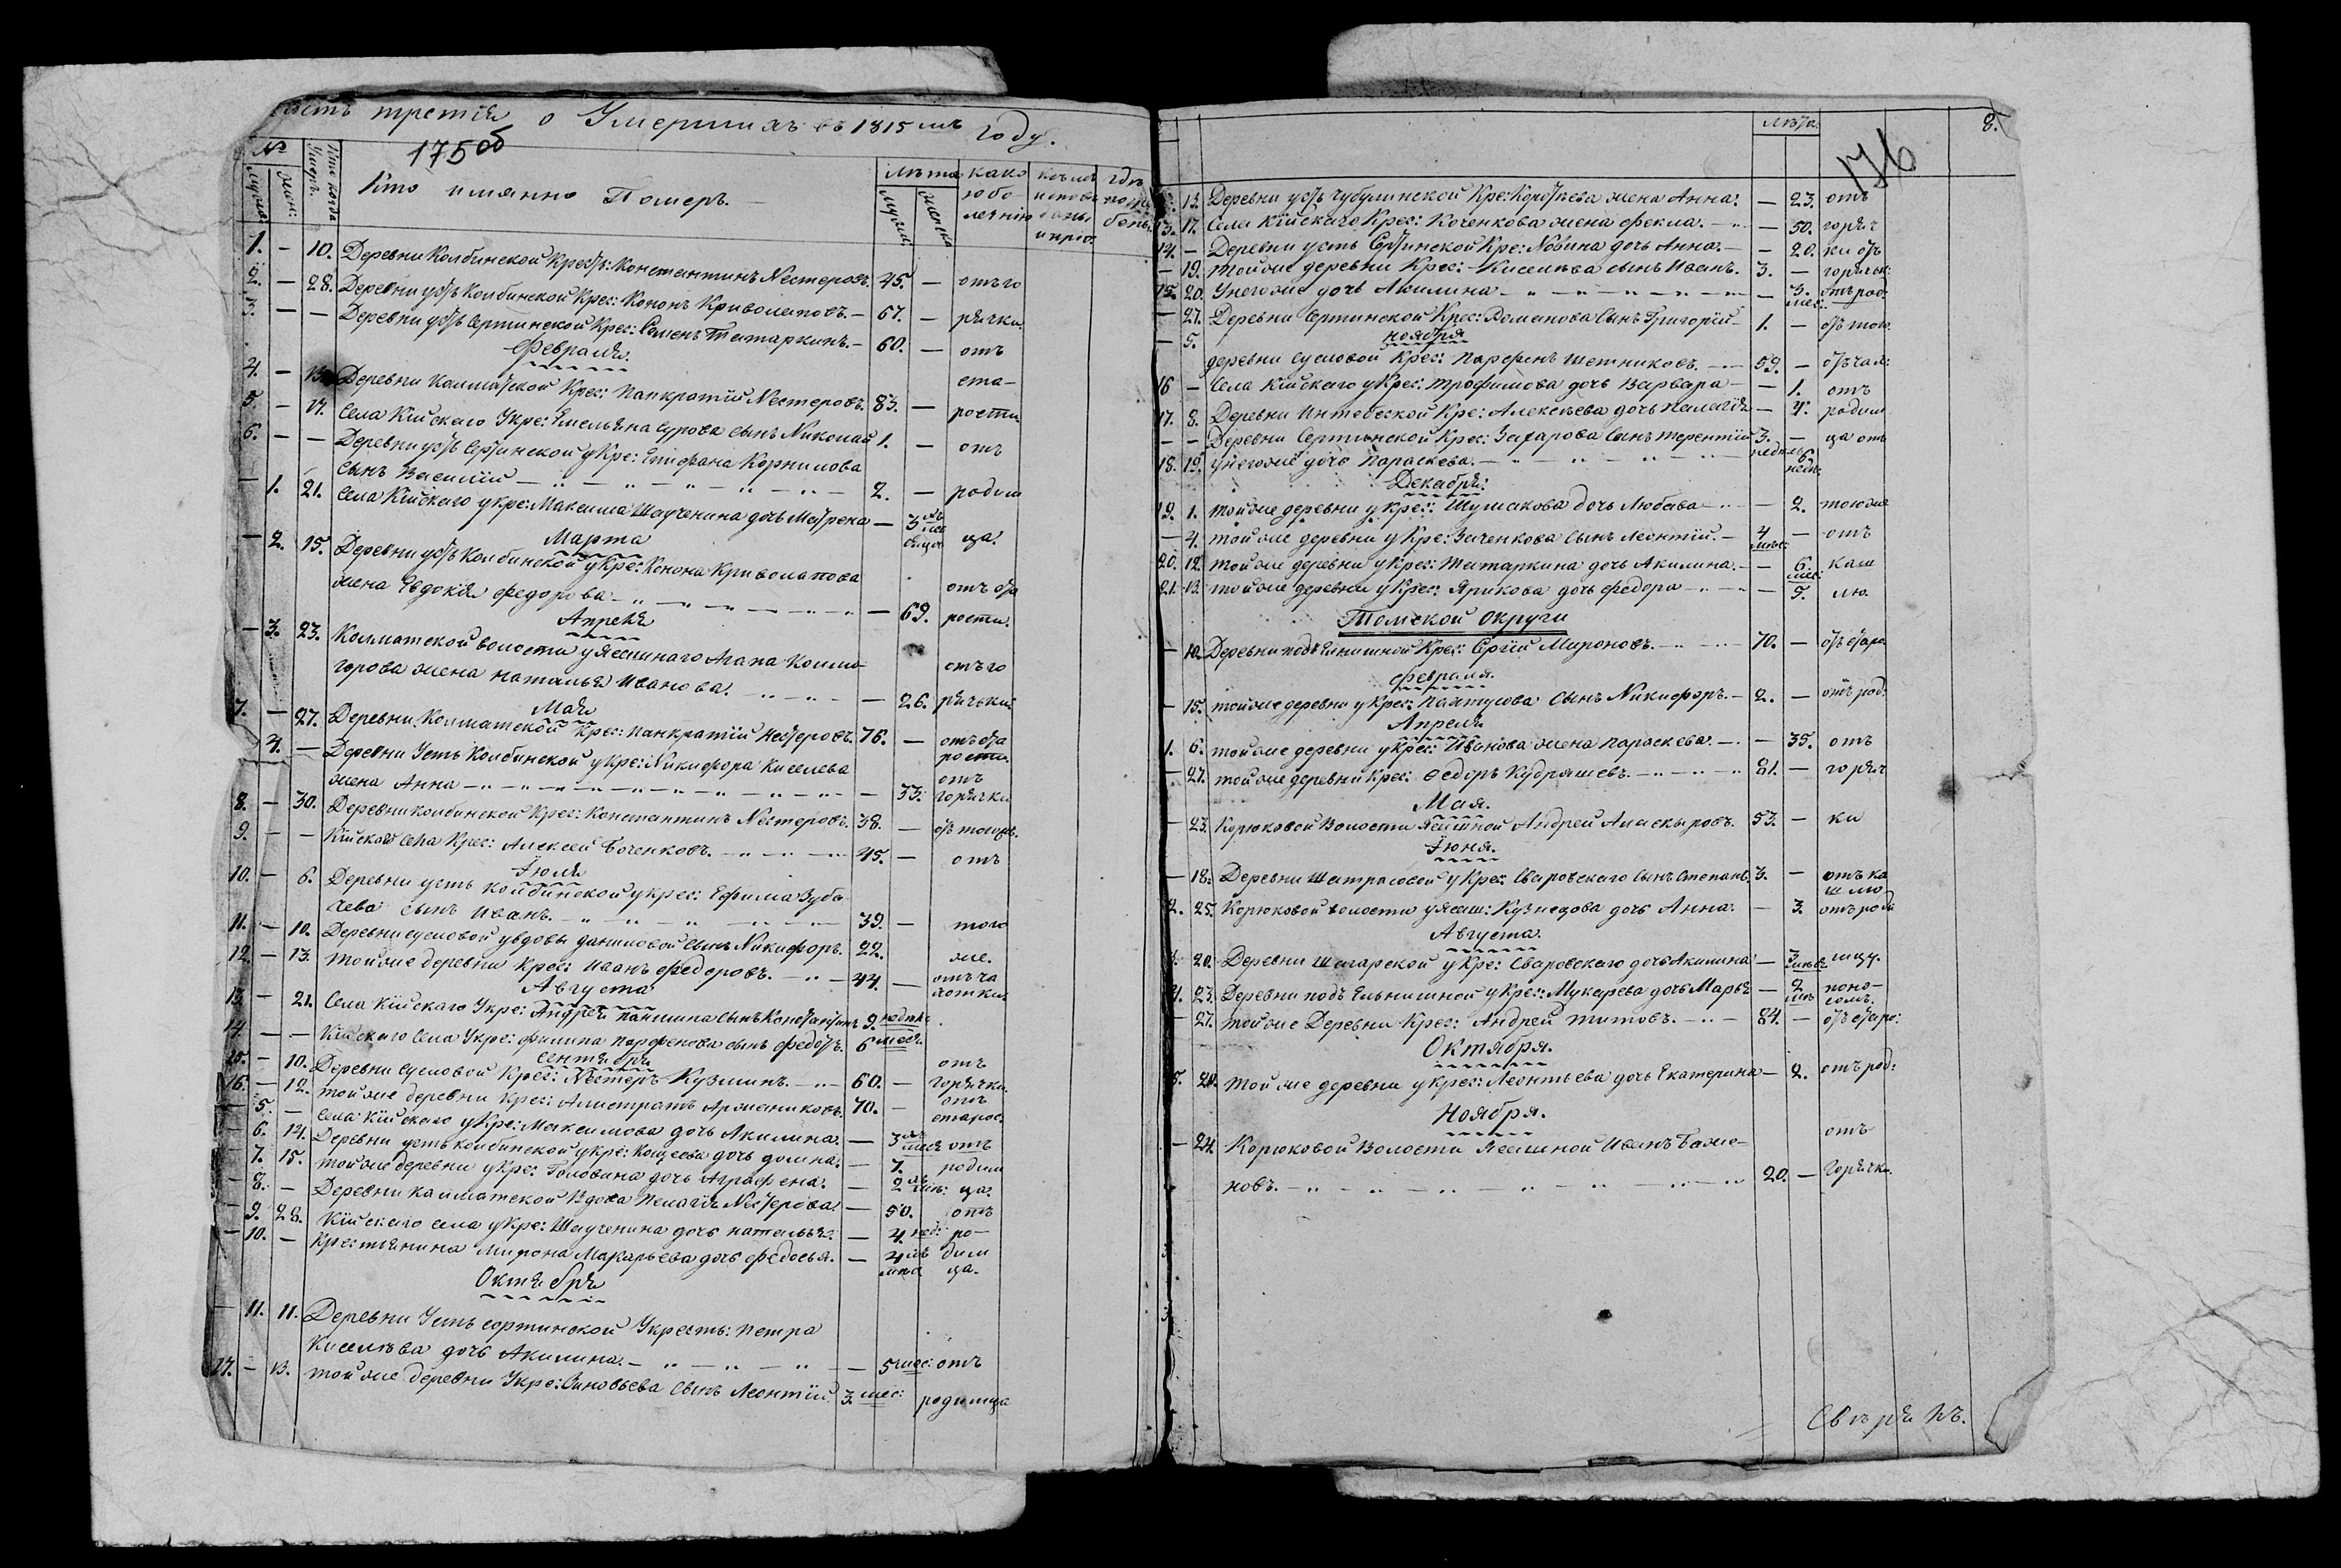 часть третія о Умершихъ въ 1815мъ году.
175об
№ Кто имянно Померъ. лѣта како
мужеска женска
1. — 10. Деревни Колбинской Крестъ: Константинъ Нестеровъ. 45. — отъ го
2. — 28. Деревни устъ Колбинской Крес: Кононъ Криволаповъ. — 67. — рячки.
3. — — Деревни устъ Сертинской Крес: Семенъ Татаркинъ. — 60. — отъ
Февраля.
4. — 13 Деревни Колматской Крес: Панкратій Нестеровъ. 83. — ста-
5. — 17. Села Кійскаго Укре: Емельяна Сурова сынъ Николай 1. — рости.
6. — — Деревни устъ Сертинской укре: Епифана Корнилова отъ
сынъ Василий — 2. — родим
— 1. 21. Села Кійскаго укре: Максима Шаученина дочь Матрена — 3 ца.
Марта
— 2. 15. Деревни устъ Колбинской укре: Конона Криволапова
жена Евдокія Федорова — 69. отъ ста рости.
Апреля
— 3. 23. Колматской волости у Ясашнаго Агапа Колмо-
горова жена Наталья Иванова. — 26. отъ го рячьки.
Мая
7. — 27. Деревни Колматской Крес: Панкратій Нестеровъ. 76. — отъ ста рости.
— 4. — Деревни Усть Колбинской укре: Никифора Киселева отъ
жена Анна — 33. горячки
8. — 30. Деревни колбинской Крес: Константинъ Нестеровъ. 38. —
9. — — Кійскаго села Крес: Алексей Боченковъ. — 45. — отъ
Іюля
10. — 6. Деревни усть колбинской укрес: Ефима Зуба-
чева сынъ Иванъ. — 39. — того
11. — 10. Деревни сусловой у вдовы Даниловой сынъ Никифоръ. 22. же.
12. — 13. Тойже деревни Крес: Иванъ Федоровъ. — 44. — отъ ча хотки.
Августа
13. — 21. Села Кійскаго Укре: Андрея Паншина сынъ Константинъ 9. недель
14 — — Кійскаго села Укре: Филипа Парфенова сынъ Федотъ. 6 мес:
Сентября
15. — 10. Деревни Сусловой Крес: Нестеръ Кузминъ. — 60. — отъ горячки.
16. — 12. Тойже деревни Крес: Алистратъ Арженниковъ. 70. — отъ
— 5. — Села Кійскаго укре: Максимова дочь Акилина. — 3 старос.
— 6. 14. Деревни усть колбинской укре: Кощеева дочь Домна. — 7. отъ
— 7. 15. Тойже деревни укре: Головина дочь Аграфена. — 2 родим
— 8. — Деревни Калматской Вдова Пелагія Нестерова. — 50. ца. отъ
— 9. 28. Кійскаго села укре: Шаученина дочь Наталья. — 4 нед: ро-
— 10. — Крестьянина Мирона Макарьева дочь Федосья. — 4 дим ца.
Октября
— 11. 11. Деревни Усть сертинской Укресть: Петра
Киселѣва дочь Акилина. — 5 мес: отъ
17. — 13. Тойже деревни Укре: Зиновьева сынъ Леонтій 3. мес: родимца
лѣта
176
8.
13. Деревни устъ Чубулинской Кре: жена Анна. — 23. отъ
13. 17. Села Кійскаго Крес: Коченкова жена Фекла. — 50. горяч
14. — Деревни усть Сертинской Кре: Новина дочь Анна. — 20. ки отъ
— 19. Тойже деревни Крес: Киселѣва сынъ Иванъ. 3. — горячк:
15. 20. Унегоже дочь Акилина — 3. мес: отъ род:
— 27. Деревни Сертинской Крес: Романова сынъ Григорій — 1. — отъ тог:
ноября
— 5. деревни сусловой Крес: Парфенъ Шетниковъ. — 59. — отъ чах:
16 — Села Кійскаго укре: Трофимова дочь Варвара — 1. отъ
17. 8. Деревни Интебеской Кре: Алексѣева дочь Пелагія — 4. родим
— — Деревни Сертинской Крес: Захарова сынъ Терентій 3. недѣл — ца отъ
18. 19. унегоже дочь Параскева. — 6 недѣл:
Декабря:
19. 1. тойже деревни укрес: Шумакова дочь Любава — 2. тоюже
— 4. тойже деревни укре: Заченкова сынъ Леонтій. — 4 — отъ
20. 12. тойже деревни укрес: Татаркина дочь Акилина. — 6. мес: каш
21. 13. тойже деревни укрес: Ярикова дочь Федора — 5. лю.
Томской округи
— 10. Деревни подъ Ельнишной Крес: Сергій Мироновъ. — 70. — отъ стара
Февраля.
— 15. тойже деревни укрес: Пахтусова сынъ Никифоръ. — 2. — отъ род:
Апреля
1. 6. тойже деревни укрес: Иванова жена Параскева. — 35. отъ
— 27. тойже деревни Крес: Федоръ Кудряшевъ. — 81. — горяч
Мая.
— 23. Корюковой Волости Ясашной Андрей 53. — ки
Іюня.
— 18. Деревни укрес: Сваровскаго сынъ Степанъ. 3. — отъ ка шлю
2. 25. Корюковой волости у Ясаш: Кузнецова дочь Анна. — 3. отъ роди
Августа.
20. Деревни Шагарской укре: Сваровскаго дочь Акилина — 3 мцу.
4. 23. Деревни подъ Ельнишной укрес: Мукарева дочь Марья — 2 поно- сомъ.
— 27. тойже Деревни Крес: Андрей Титовъ. — 84. — отъ старо:
Октября.
5. 20. тойже деревни укрес: Леонтьева дочь Екатерина — 2. отъ род:
Ноября.
— 24. Корюковой Волости Ясашной Иванъ Бажо- отъ
новъ. — 20. — Горячки.
Свѣрялъ.